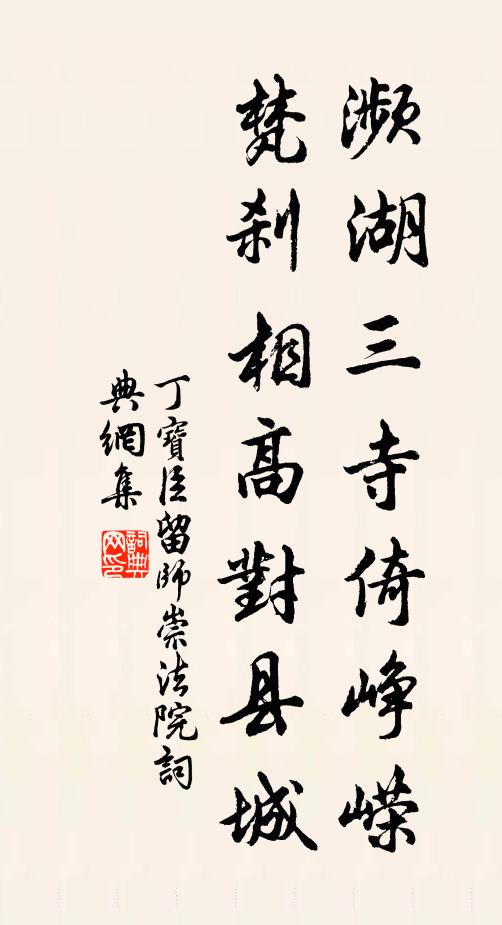 瀕湖三寺倚峥嶸
梵刹相高對县城
丁寶臣留師崇法院詞
典網集
詞典
网印